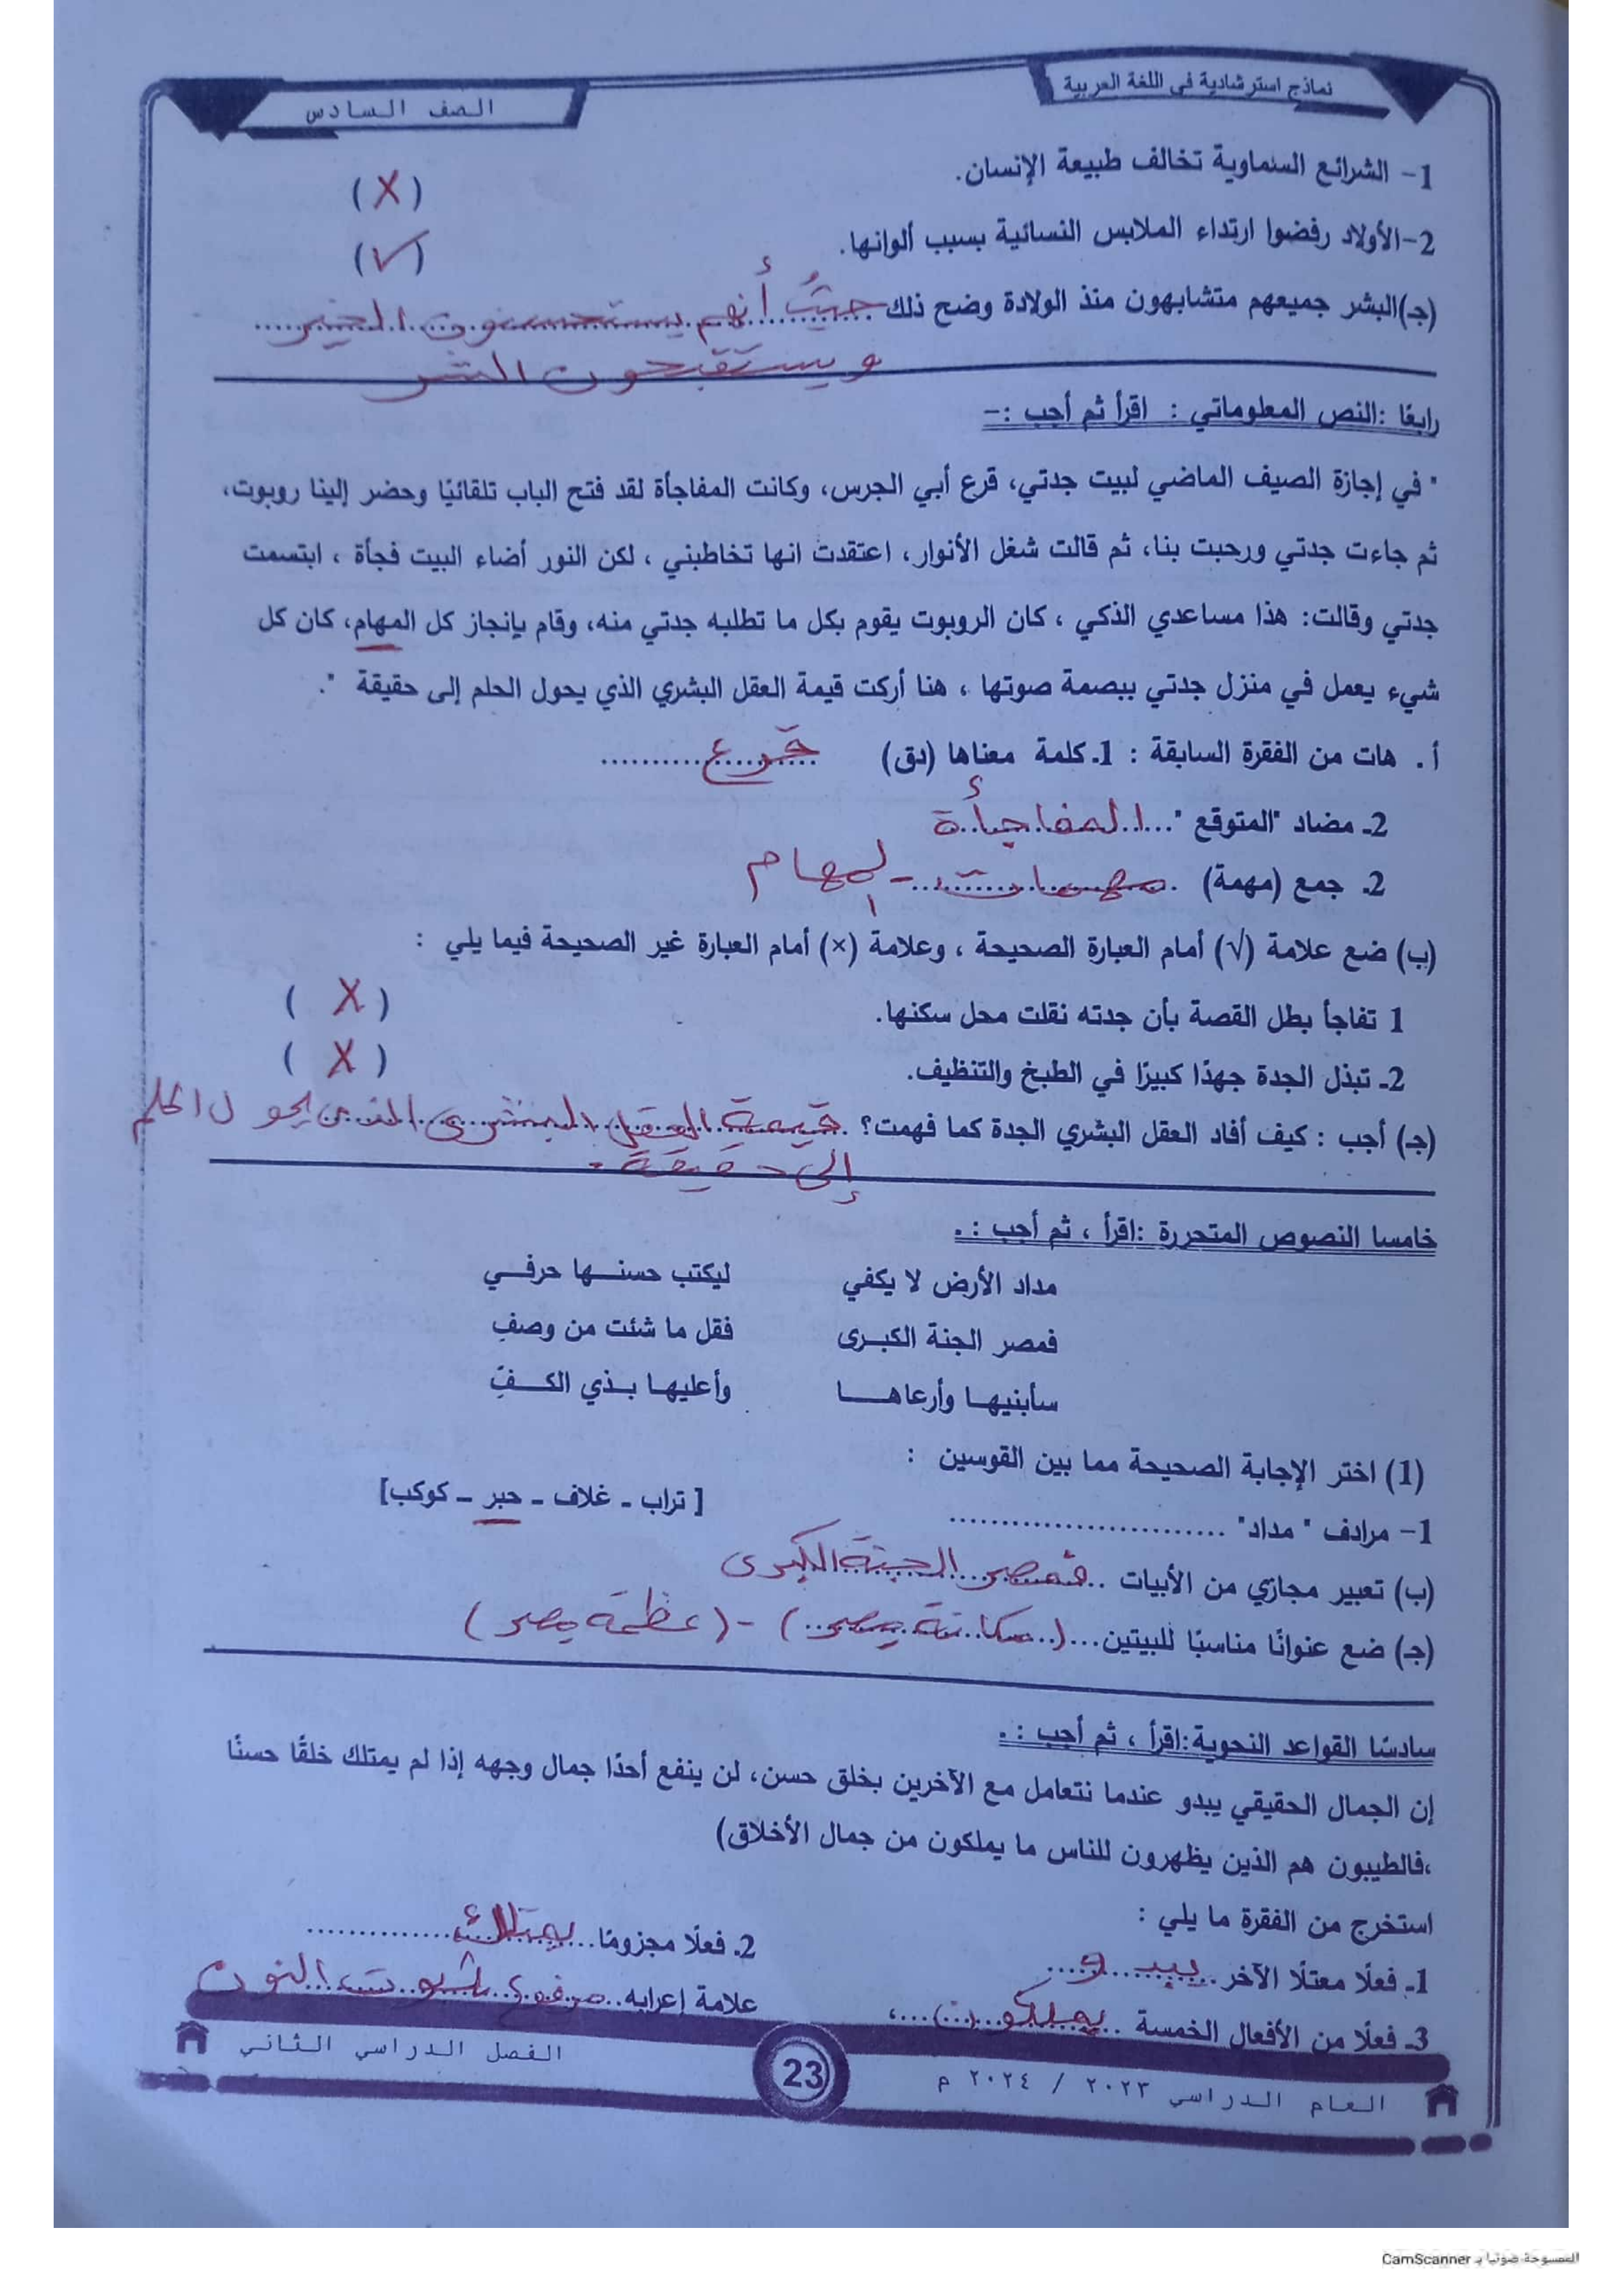 نماذج استرشادية في اللغة العربية
الصف السادس
1- الشرائع السماوية تخالف طبيعة الإنسان.
(X)
2-الأولاد رفضوا ارتداء الملابس النسائية بسبب ألوانها.
(√)
(جـ)البشر جميعهم متشابهون منذ الولادة وضح ذلك حيثُ أنهم يستحسنون الخير
ويستقبحون الشر
رابعًا :النص المعلوماتي : اقرأ ثم أجب :-
" في إجازة الصيف الماضي لبيت جدتي، قرع أبي الجرس، وكانت المفاجأة لقد فتح الباب تلقائيًا وحضر إلينا روبوت،
ثم جاءت جدتي ورحبت بنا، ثم قالت شغل الأنوار، اعتقدت انها تخاطبني ، لكن النور أضاء البيت فجأة ، ابتسمت
جدتي وقالت: هذا مساعدي الذكي ، كان الروبوت يقوم بكل ما تطلبه جدتي منه، وقام بإنجاز كل المهام، كان كل
شيء يعمل في منزل جدتي ببصمة صوتها ، هنا أركت قيمة العقل البشري الذي يحول الحلم إلى حقيقة ".
أ . هات من الفقرة السابقة : 1ـ كلمة معناها (دق) قرع
2ـ مضاد "المتوقع " المفاجأة
2. جمع (مهمة) مهمات - المهام
(ب) ضع علامة (√) أمام العبارة الصحيحة ، وعلامة (×) أمام العبارة غير الصحيحة فيما يلي :
1 تفاجأ بطل القصة بأن جدته نقلت محل سكنها.
( X )
2ـ تبذل الجدة جهدًا كبيرًا في الطبخ والتنظيف.
( X )
(جـ) أجب : كيف أفاد العقل البشري الجدة كما فهمت؟ قيمة العقل البشرى الذى يحول الحلم
إلى حقيقة .
خامسا النصوص المتحررة :اقرأ ، ثم أجب : .
مداد الأرض لا يكفي ليكتب حسنـها حرفـي
فمصر الجنة الكبـرى فقل ما شئت من وصفِ
سأبنيهـا وأرعاهــا وأعليهـا بـذي الكـفِّ
(1) اختر الإجابة الصحيحة مما بين القوسين :
1- مرادف " مداد" ........................... [ تراب ـ غلاف ـ حبر ـ كوكب]
(ب) تعبير مجازي من الأبيات فمصر الجنة الكبرى
(جـ) ضع عنوانًا مناسبًا للبيتين (مكانة مصر) - (عظمة مصر)
سادسًا القواعد النحوية:اقرأ ، ثم أجب : .
إن الجمال الحقيقي يبدو عندما نتعامل مع الآخرين بخلق حسن، لن ينفع أحدًا جمال وجهه إذا لم يمتلك خلقًا حسنًا
،فالطيبون هم الذين يظهرون للناس ما يملكون من جمال الأخلاق)
استخرج من الفقرة ما يلي :
1ـ فعلًا معتلًا الآخر يبدو 2ـ فعلًا مجزومًا يمتلك
3ـ فعلًا من الأفعال الخمسة يملكون ، علامة إعرابه مرفوع بثبوت النون
العام الدراسي ٢٠٢٣ / ٢٠٢٤ م
23
الفصل الدراسي الثاني
الممسوحة ضوئيا بـ CamScanner